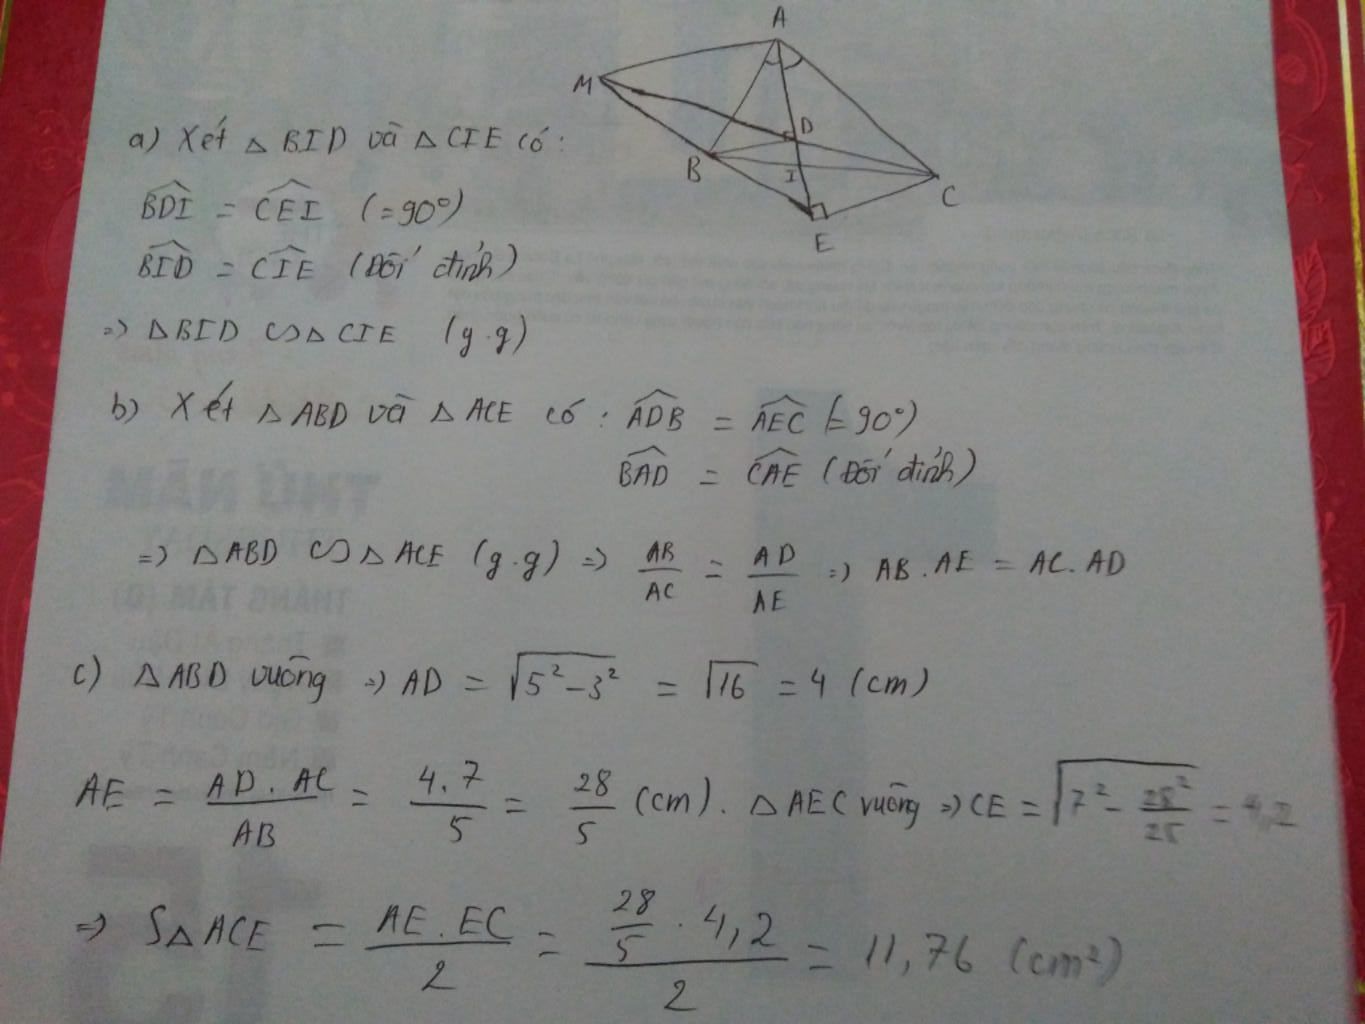 A
M
D
B
I
C
E
a) Xét △ BID và △ CIE có:
BDI = CEI (=90°)
BID = CIE (Đối đỉnh)
=> △BID ∽ △ CIE (g.g)
b) Xét △ ABD và △ ACE có: ADB = AEC (=90°)
BAD = CAE (Đối đỉnh)
=> △ABD ∽ △ ACE (g.g) => AB/AC = AD/AE => AB.AE = AC.AD
c) △ABD vuông => AD = √(5²-3²) = √16 = 4 (cm)
AE = AD.AC/AB = 4.7/5 = 28/5 (cm). △AEC vuông => CE = √(7² - 28²/25) = 4,2
=> S△ACE = AE.EC/2 = (28/5 . 4,2)/2 = 11,76 (cm²)
THỨ NĂM
THÁNG TÁM (Đ)